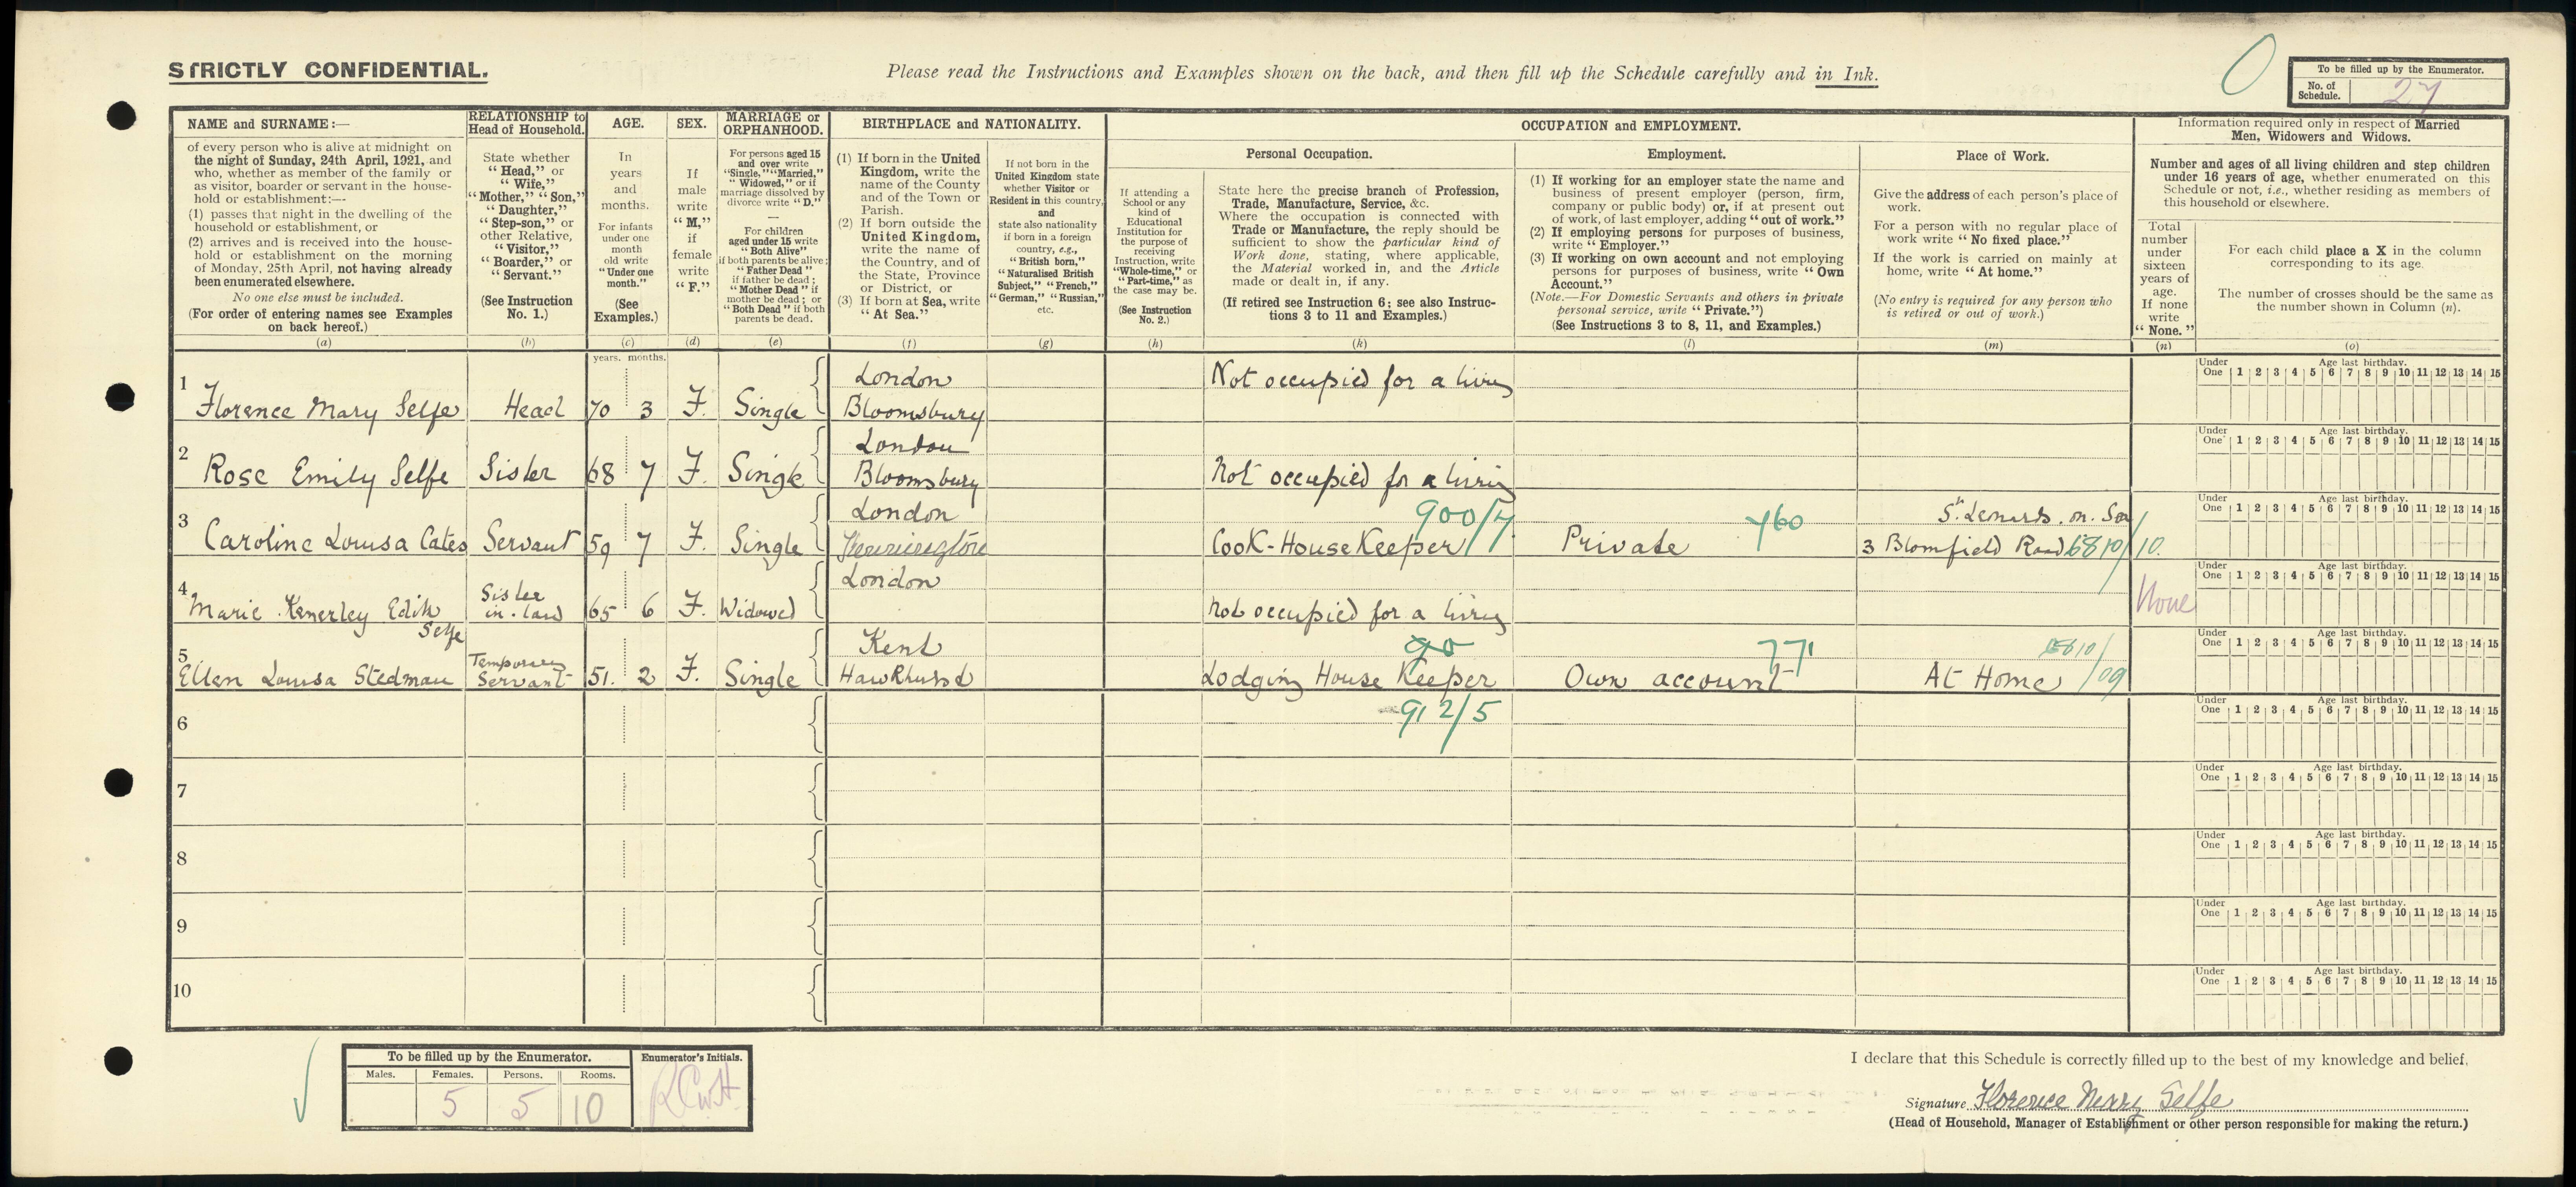 STRICTLY CONFIDENTIAL.
Please read the Instructions and Examples shown on the back, and then fill up the Schedule carefully and in Ink.
To be filled up by the Enumerator.
No. of Schedule. 27
NAME and SURNAME:—
of every person who is alive at midnight on
the night of Sunday, 24th April, 1921, and
who, whether as member of the family or
as visitor, boarder or servant in the house-
hold or establishment:—
(1) passes that night in the dwelling of the
household or establishment, or
(2) arrives and is received into the house-
hold or establishment on the morning
of Monday, 25th April, not having already
been enumerated elsewhere.
No one else must be included.
(For order of entering names see Examples
on back hereof.)
(a)
RELATIONSHIP to
Head of Household.
State whether
"Head," or
"Wife,"
"Mother," "Son,"
"Daughter,"
"Step-son," or
other Relative,
"Visitor,"
"Boarder," or
"Servant."
(See Instruction
No. 1.)
(b)
AGE.
In
years
and
months.
For infants
under one
month
old write
"Under one
month."
(See
Examples.)
(c)
SEX.
If
male
write
"M,"
if
female
write
"F."
(d)
MARRIAGE or
ORPHANHOOD.
For persons aged 15
and over write
"Single," "Married,"
"Widowed," or if
marriage dissolved by
divorce write "D."
—
For children
aged under 15 write
"Both Alive"
if both parents be alive;
"Father Dead"
if father be dead;
"Mother Dead" if
mother be dead; or
"Both Dead" if both
parents be dead.
(e)
BIRTHPLACE and NATIONALITY.
(1) If born in the United
Kingdom, write the
name of the County
and of the Town or
Parish.
(2) If born outside the
United Kingdom,
write the name of
the Country, and of
the State, Province
or District, or
(3) If born at Sea, write
"At Sea."
(f)
If not born in the
United Kingdom state
whether Visitor or
Resident in this country,
and
state also nationality
if born in a foreign
country, e.g.,
"British born,"
"Naturalised British
Subject," "French,"
"German," "Russian,"
etc.
(g)
OCCUPATION and EMPLOYMENT.
Personal Occupation.
If attending a
School or any
kind of
Educational
Institution for
the purpose of
receiving
Instruction, write
"Whole-time," or
"Part-time," as
the case may be.
(See Instruction
No. 2.)
(h)
State here the precise branch of Profession,
Trade, Manufacture, Service, &c.
Where the occupation is connected with
Trade or Manufacture, the reply should be
sufficient to show the particular kind of
Work done, stating, where applicable,
the Material worked in, and the Article
made or dealt in, if any.
(If retired see Instruction 6; see also Instruc-
tions 3 to 11 and Examples.)
(k)
Employment.
(1) If working for an employer state the name and
business of present employer (person, firm,
company or public body) or, if at present out
of work, of last employer, adding "out of work."
(2) If employing persons for purposes of business,
write "Employer."
(3) If working on own account and not employing
persons for purposes of business, write "Own
Account."
(Note.—For Domestic Servants and others in private
personal service, write "Private.")
(See Instructions 3 to 8, 11, and Examples.)
(l)
Place of Work.
Give the address of each person's place of
work.
For a person with no regular place of
work write "No fixed place."
If the work is carried on mainly at
home, write "At home."
(No entry is required for any person who
is retired or out of work.)
(m)
Information required only in respect of Married
Men, Widowers and Widows.
Number and ages of all living children and step children
under 16 years of age, whether enumerated on this
Schedule or not, i.e., whether residing as members of
this household or elsewhere.
Total
number
under
sixteen
years of
age.
If none
write
"None."
(n)
For each child place a X in the column
corresponding to its age.
The number of crosses should be the same as
the number shown in Column (n).
(o)
years. months.
1 Florence Mary Selfe Head 70 3 F. Single London Bloomsbury Not occupied for a living
Under One Age last birthday. 1 2 3 4 5 6 7 8 9 10 11 12 13 14 15
2 Rose Emily Selfe Sister 68 7 F. Single London Bloomsbury Not occupied for a living
Under One Age last birthday. 1 2 3 4 5 6 7 8 9 10 11 12 13 14 15
3 Caroline Louisa Cates Servant 59 7 F. Single London Kennington Cook-HouseKeeper 900/7. Private 760 St. Lenards. on. Sea 3 Blomfield Road 6810/10.
Under One Age last birthday. 1 2 3 4 5 6 7 8 9 10 11 12 13 14 15
4 Marie Kenerley Edith Selfe Sister in-law 65 6 F. Widowed London Not occupied for a living None
Under One Age last birthday. 1 2 3 4 5 6 7 8 9 10 11 12 13 14 15
5 Ellen Louisa Stedman Temporary Servant 51. 2 F. Single Kent Hawkhurst Lodging House Keeper 912/5 Own account 771 At Home /09
Under One Age last birthday. 1 2 3 4 5 6 7 8 9 10 11 12 13 14 15
6
Under One Age last birthday. 1 2 3 4 5 6 7 8 9 10 11 12 13 14 15
7
Under One Age last birthday. 1 2 3 4 5 6 7 8 9 10 11 12 13 14 15
8
Under One Age last birthday. 1 2 3 4 5 6 7 8 9 10 11 12 13 14 15
9
Under One Age last birthday. 1 2 3 4 5 6 7 8 9 10 11 12 13 14 15
10
Under One Age last birthday. 1 2 3 4 5 6 7 8 9 10 11 12 13 14 15
To be filled up by the Enumerator.
Males. Females. Persons. Rooms.
5 5 10
Enumerator's Initials.
I declare that this Schedule is correctly filled up to the best of my knowledge and belief.
Signature Florence Mary Selfe
(Head of Household, Manager of Establishment or other person responsible for making the return.)